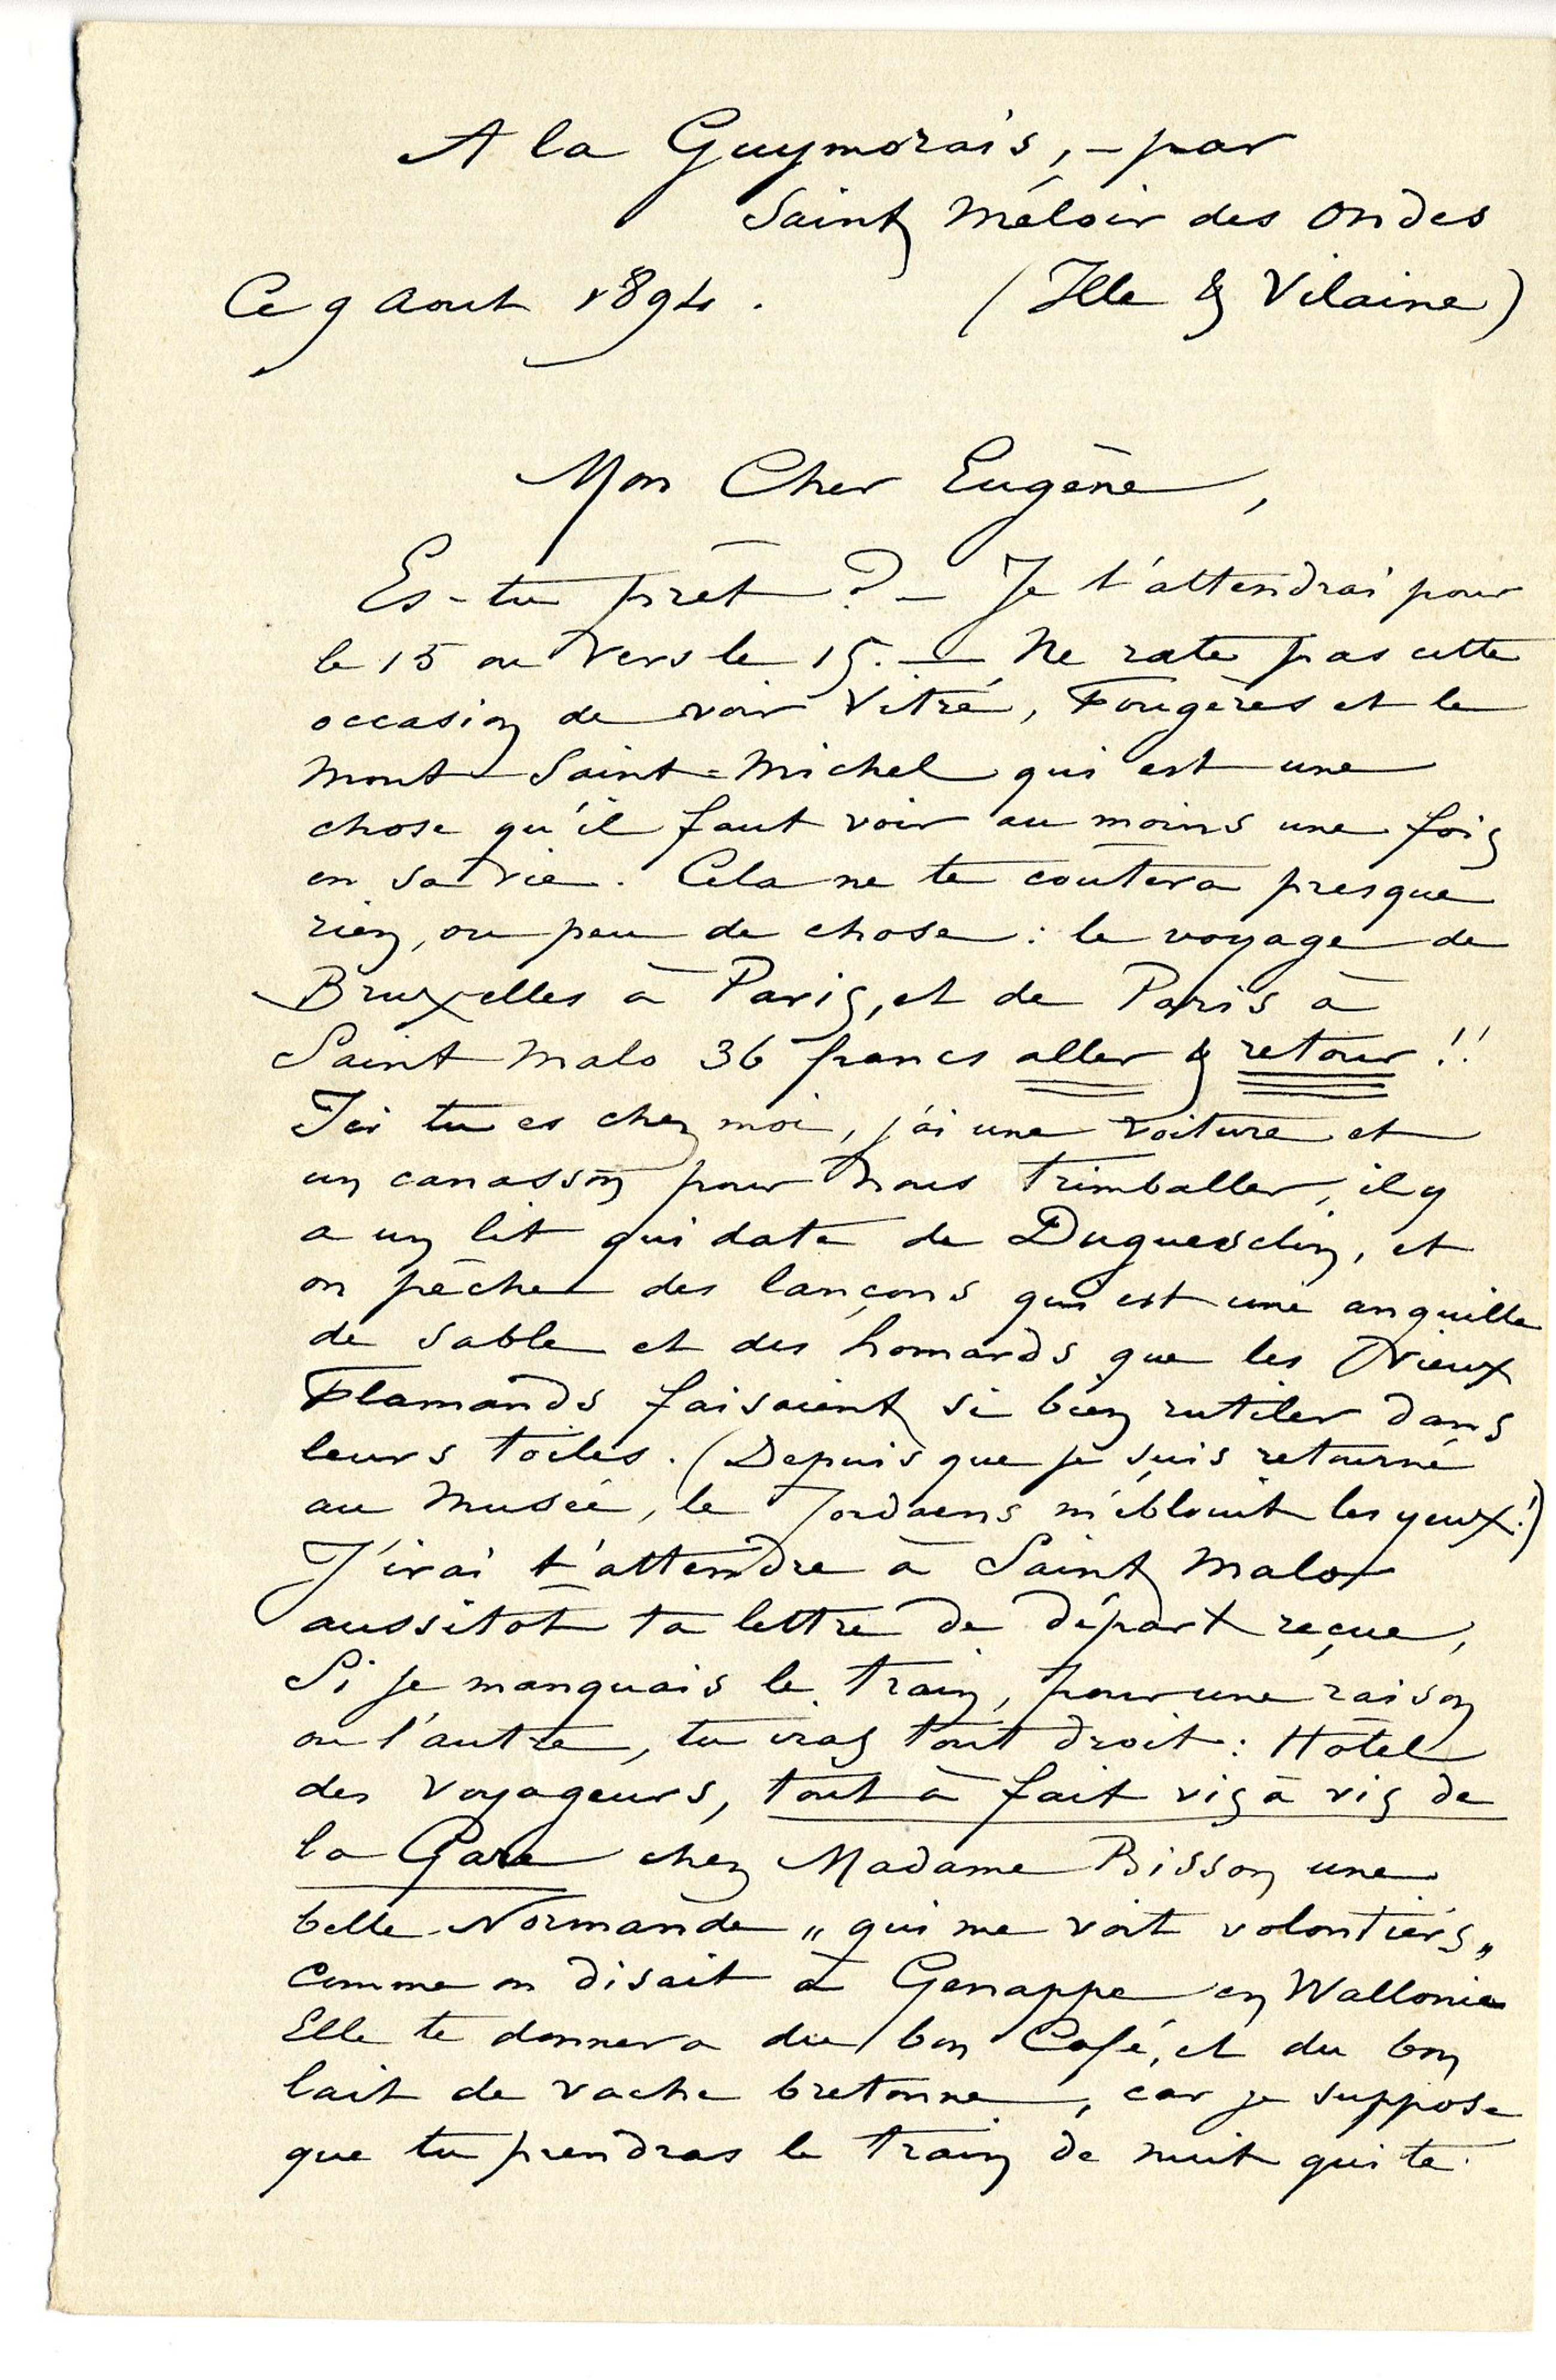 A la Guymorais, – par
Saint Méloir des Ondes
Ce 9 Aout 1894. (Ille & Vilaine)
Mon Cher Eugène,
Es-tu prêt ? – Je t'attendrai pour
le 15 ou vers le 15. – Ne rate pas cette
occasion de voir Vitré, Fougères et le
Mont-Saint-Michel qui est une
chose qu'il faut voir au moins une fois
en sa vie. Cela ne te coûtera presque
rien, ou peu de chose : le voyage de
Bruxelles à Paris, et de Paris à
Saint Malo 36 francs aller & retour !!
Ici tu es chez moi, j'ai une voiture et
un canasson pour nous trimballer, il y
a un lit qui date de Duguesclin, et
on pêche des lançons qui est une anguille
de sable et des homards que les Vieux
Flamands faisaient si bien rutiler dans
leurs toiles. (Depuis que je suis retourné
au Musée, le Jordaens m'éblouit les yeux !)
J'irai t'attendre à Saint Malo
aussitot ta lettre de départ reçue,
Si je manquais le train, pour une raison
ou l'autre, tu iras tout droit : Hôtel
des Voyageurs, tout à fait vis à vis de
la Gare chez Madame Bisson une
belle Normande „ qui me voit volontiers „
comme on disait à Genappe en Wallonie
Elle te donnera du bon Café, et du bon
lait de vache bretonne, car je suppose
que tu prendras le train de nuit qui te